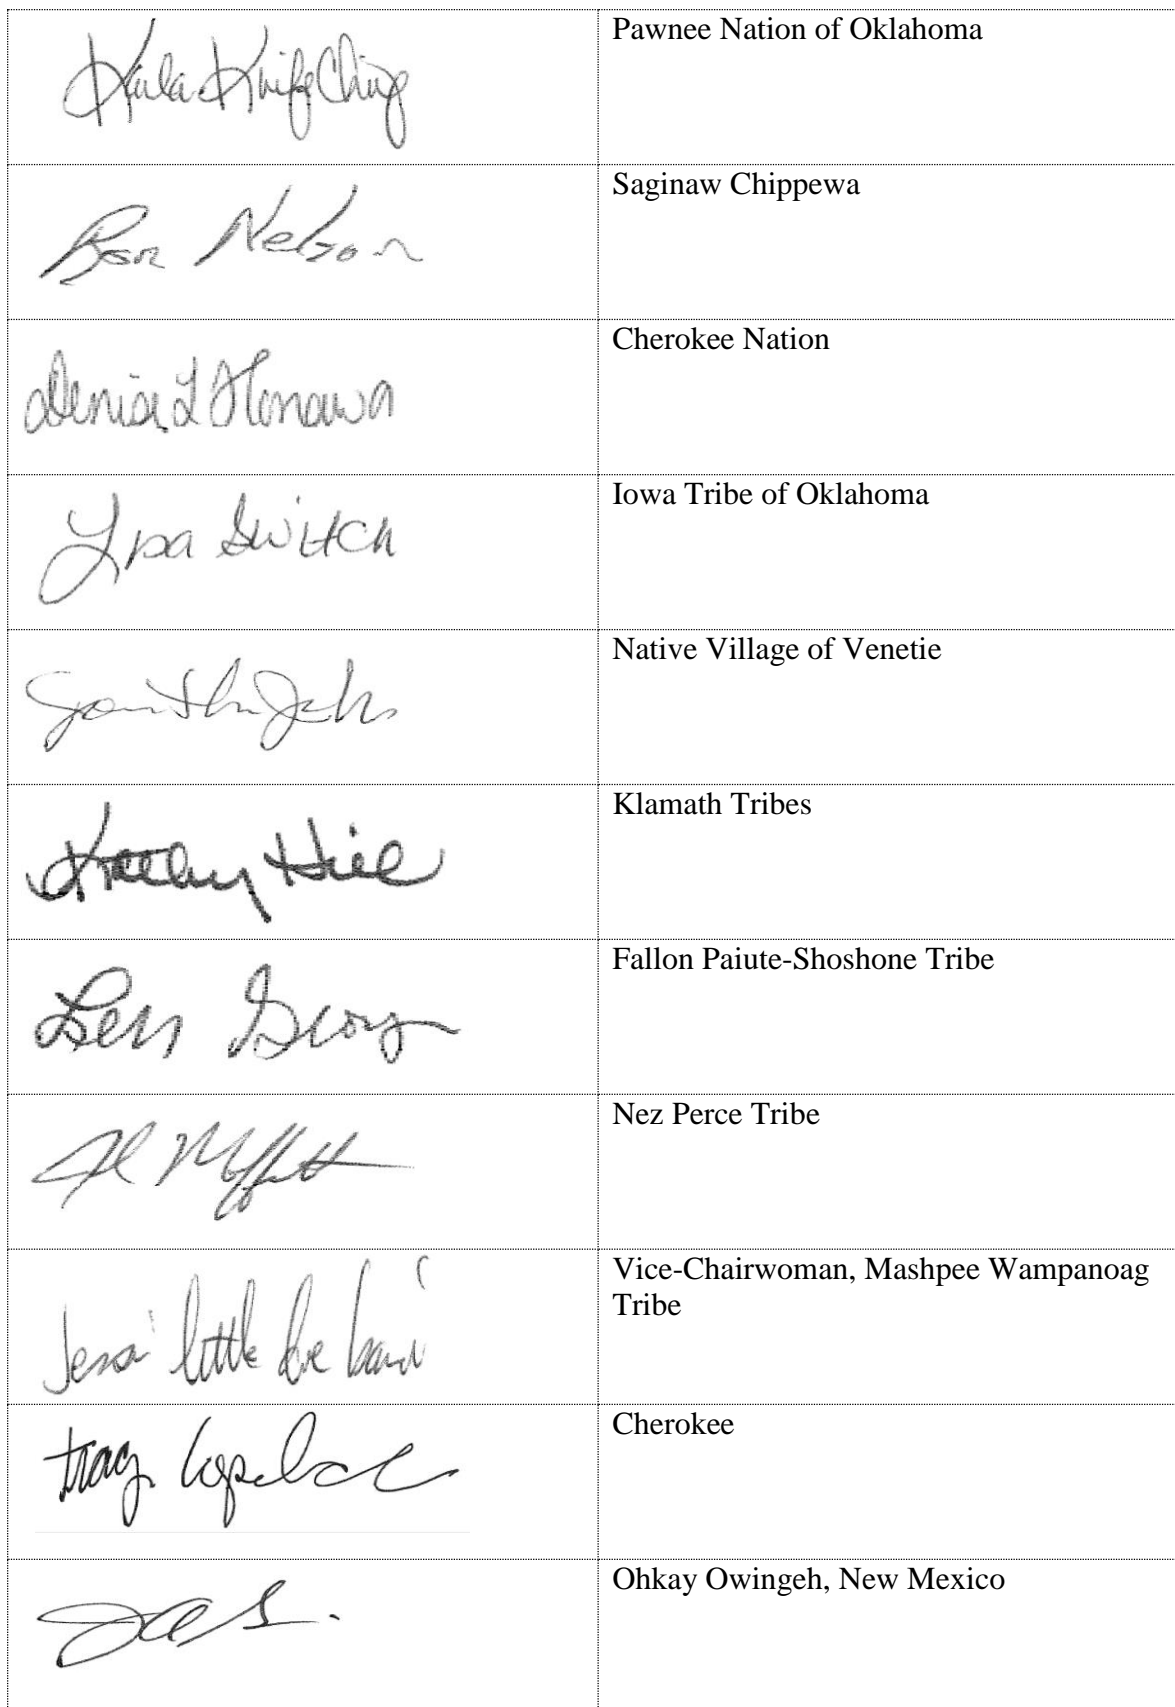 Kala KnifeChief
Pawnee Nation of Oklahoma
Ron Nelson
Saginaw Chippewa
Denise L Honawa
Cherokee Nation
Lisa Switch
Iowa Tribe of Oklahoma
Native Village of Venetie
Kathey Hill
Klamath Tribes
Len George
Fallon Paiute-Shoshone Tribe
Moffett
Nez Perce Tribe
Jessie little doe baird
Vice-Chairwoman, Mashpee Wampanoag
Tribe
tracy
Cherokee
Ohkay Owingeh, New Mexico